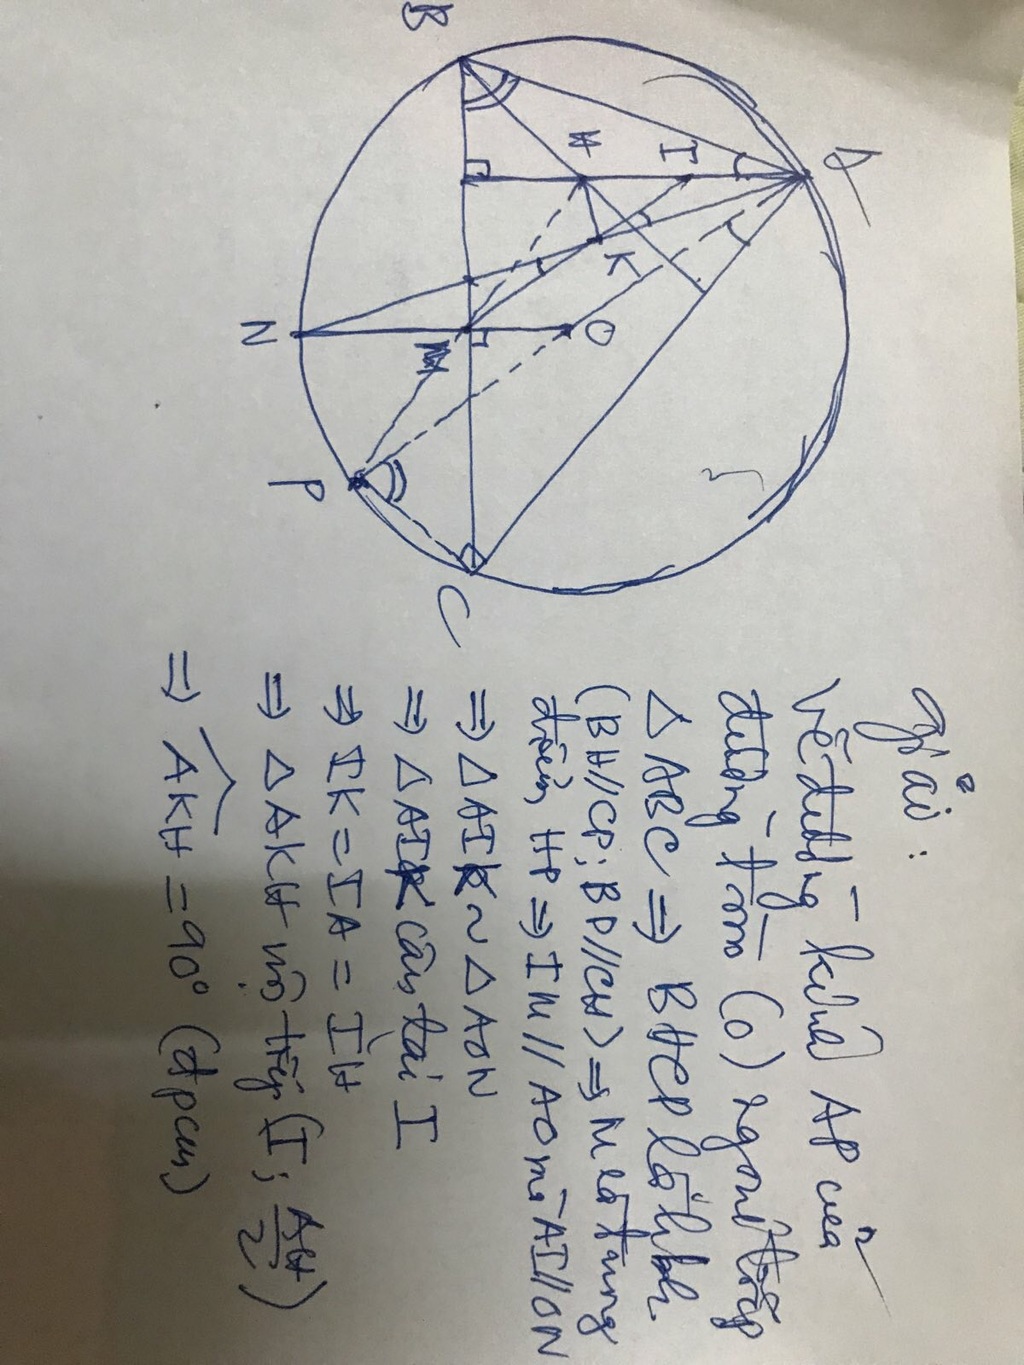 B
A
H
I
K
O
N
M
P
C
Giải:
Vẽ đường kính AP của
đường tròn (O) ngoại tiếp
△ABC ⇒ BHCP là hbh
(BH//CP; BP//CH) ⇒ M là trung
điểm HP ⇒ IM // AO mà AI//ON
⇒ △AIK ~ △AON
⇒ △AIK cân tại I
⇒ IK = IA = IH
⇒ △AKH nội tiếp (I; AH/2)
⇒ AKH = 90° (đpcm)